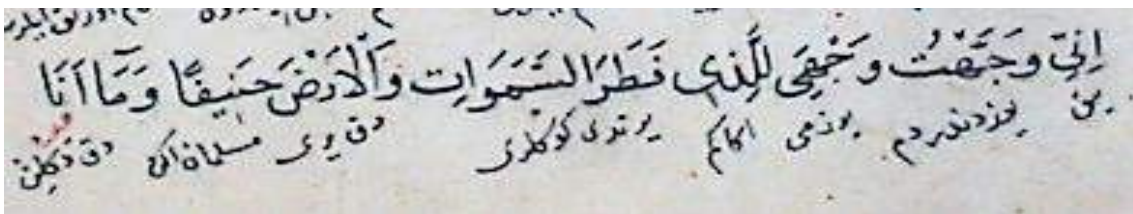 اِنِّي وَجَّهْتُ وَجْهِيَ لِلَّذِي فَطَرَ السَّمَوَاتِ وَالْاَرْضَ حَنِيفًا وَمَٓا اَنَا
بن يوز دندردم يوزمى اكاكم يرتدى كوكلرى دق يرى مسلمان دق